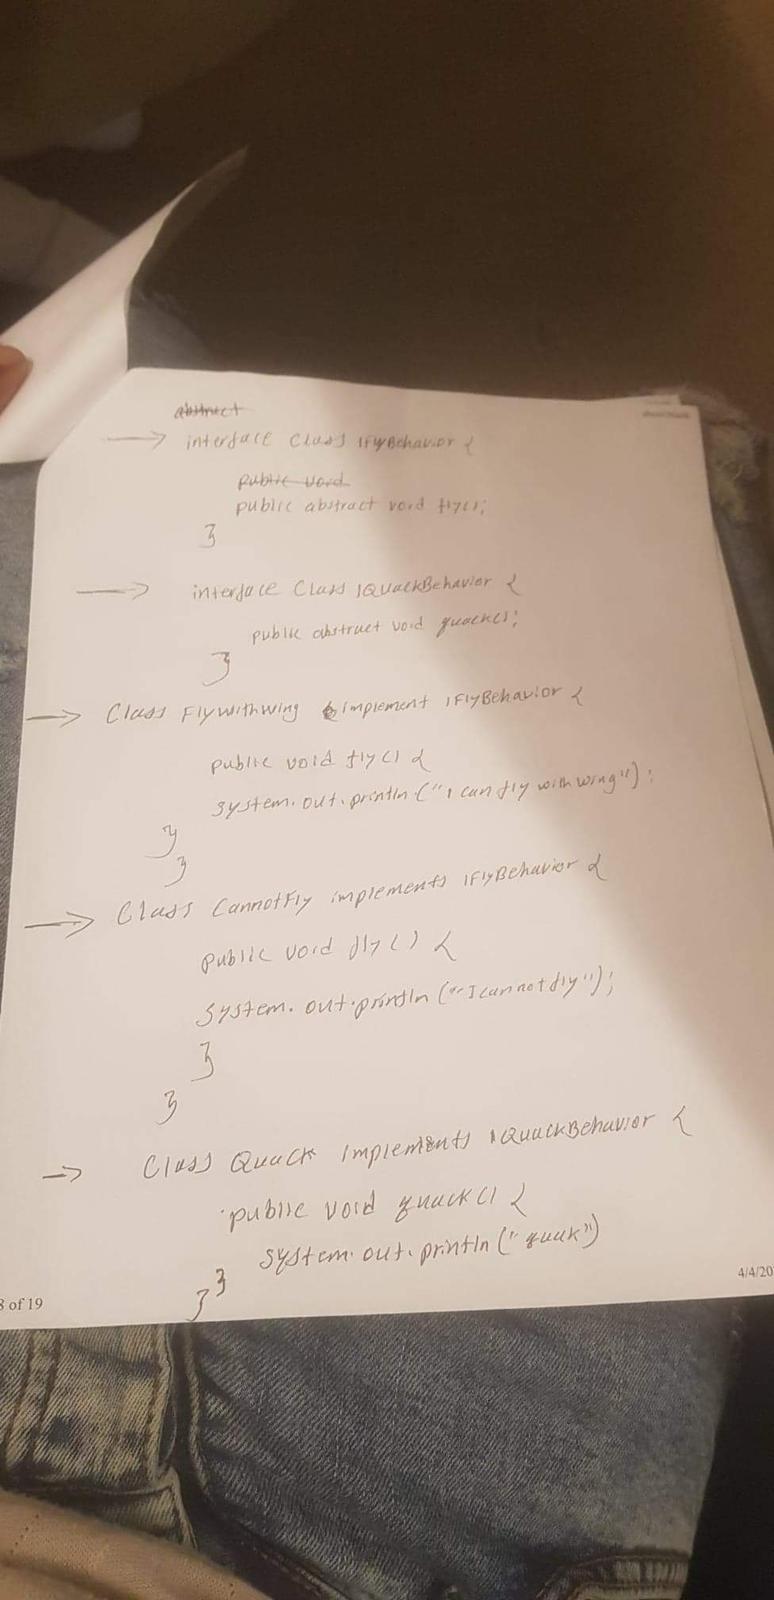 abstract
interface Class IFlyBehavior {
public void
public abstract void fly();
}
interface Class IQuackBehavior {
public abstract void quack();
}
Class Flywithwing implement IFlyBehavior {
public void fly() {
system.out.println("I can fly with wing");
}
}
Class CannotFly implements IFlyBehavior {
public void fly() {
system.out.println("I cannot fly");
}
}
Class Quack implements IQuackBehavior {
public void quack() {
system.out.println("quak")
}
}
8 of 19
4/4/20